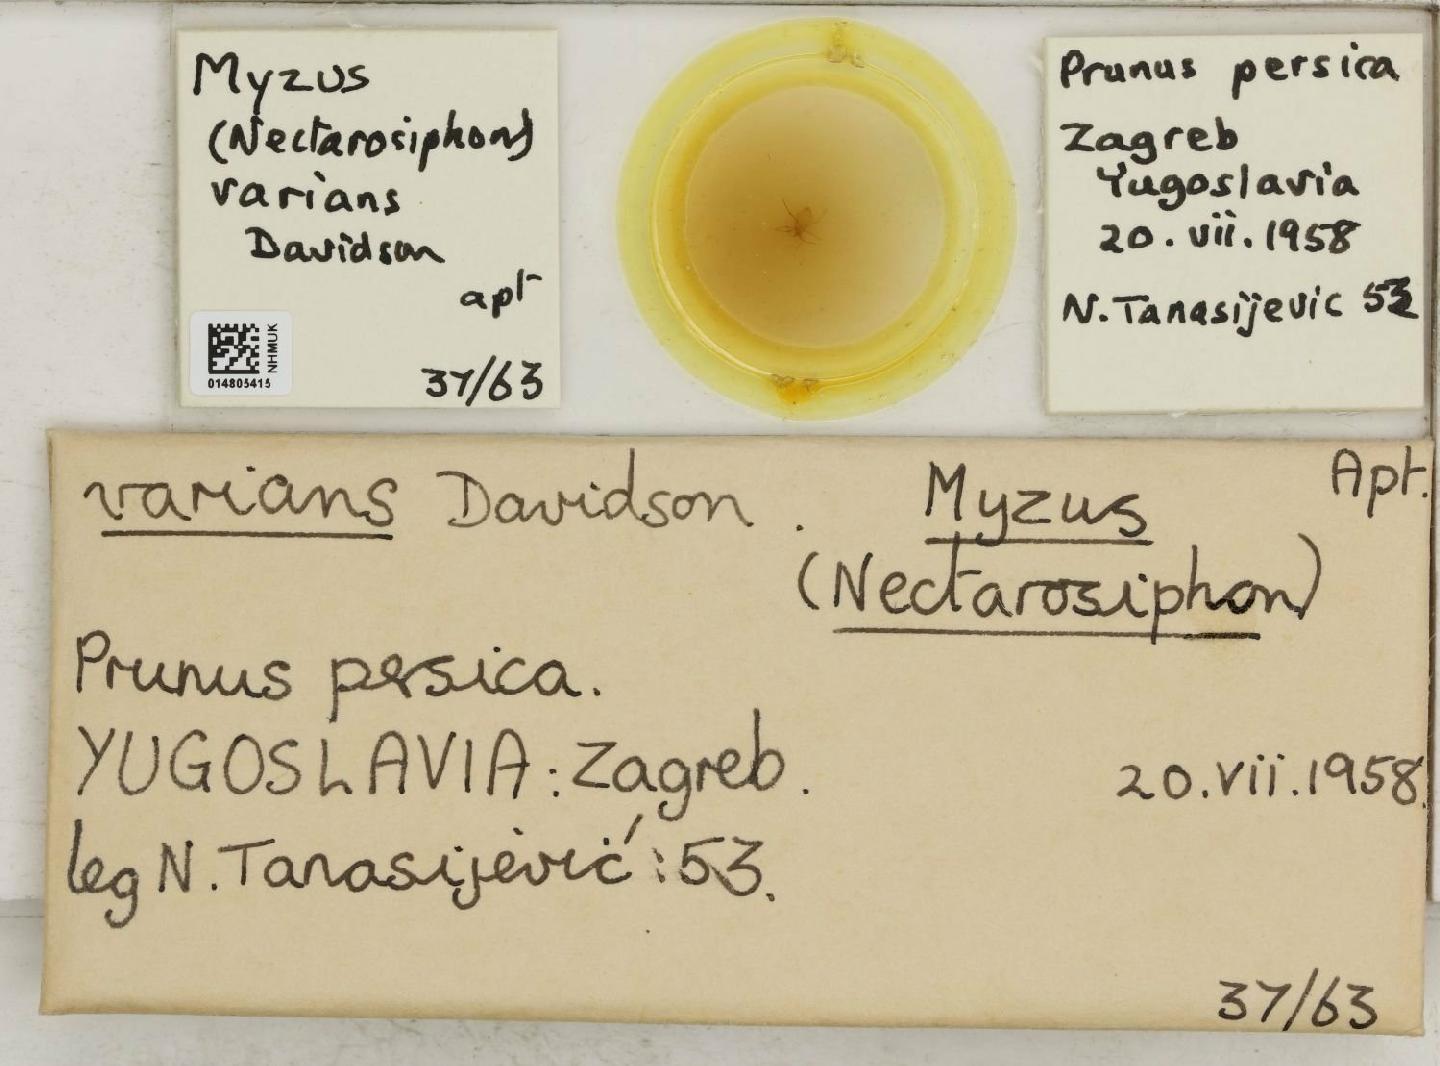 Myzus
(Nectarosiphon)
varians
Davidson
apt
NHMUK
014805415
37/63
Prunus persica
Zagreb
Yugoslavia
20.vii.1958
N. Tanasijevic 53
varians Davidson. Myzus Apt.
(Nectarosiphon)
Prunus persica.
YUGOSLAVIA: Zagreb. 20.vii.1958.
leg N. Tanasijević: 53.
37/63